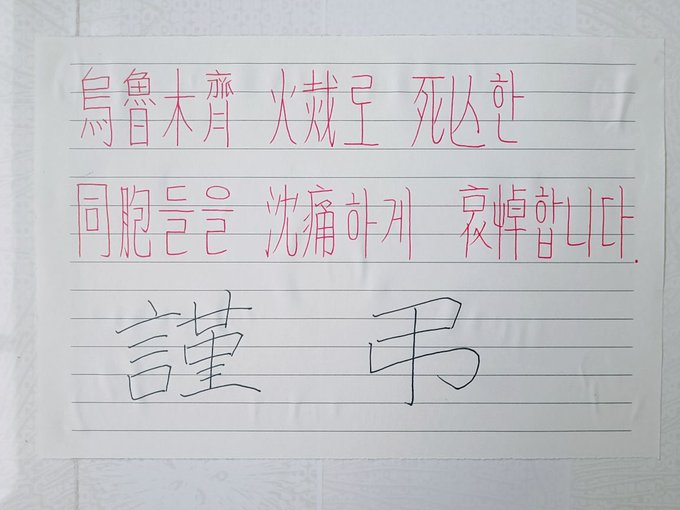 烏魯木齊 火烖로 死亾한
同胞들을 沈痛하게 哀悼합니다.
謹弔